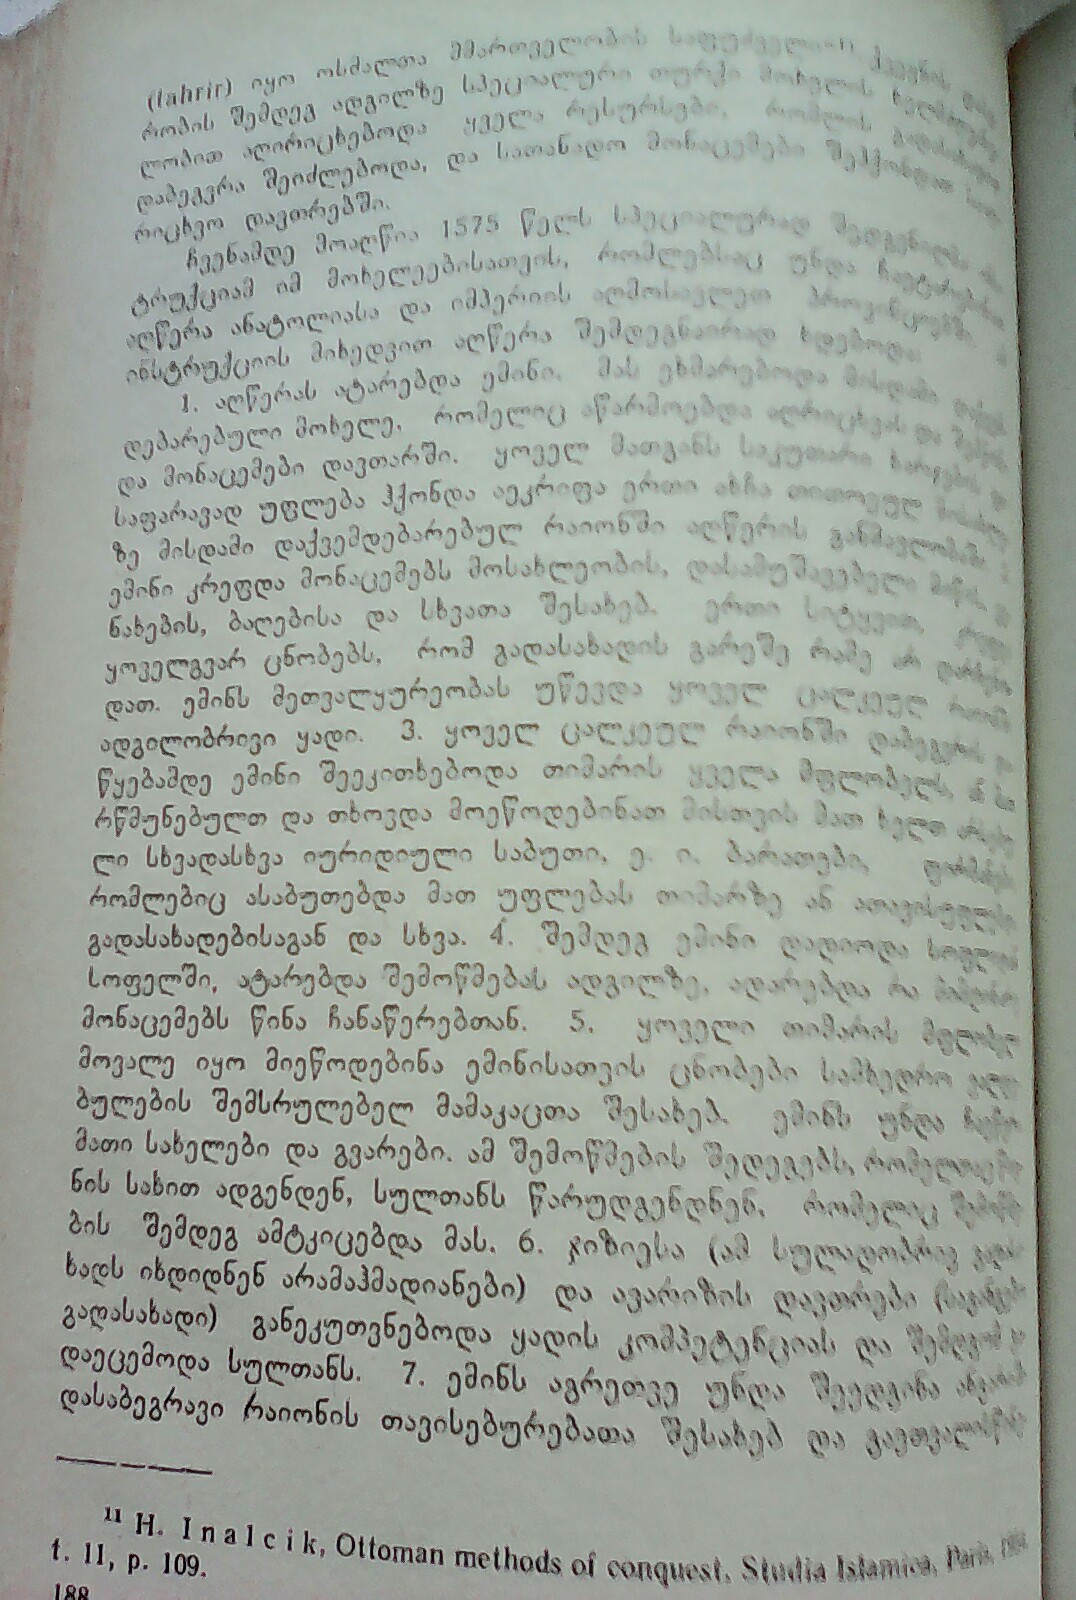 (tahrir) იყო ოსმალთა მმართველობის საფუძველი¹¹. ქვეყნის
რობის შემდეგ ადგილზე სპეციალური თურქი მოხელის
ლობით აღირიცხებოდა ყველა რესურსები, რომლის
დაბეგვრა შეიძლებოდა, და სათანადო მონაცემები შეჰქონდათ
რიცხვო დავთრებში.
ჩვენამდე მოაღწია 1575 წელს სპეციალურად შედგენილმა
ტრუქციამ იმ მოხელეებისათვის, რომლებსაც უნდა ჩაეტარებინათ
აღწერა ანატოლიასა და იმპერიის აღმოსავლეთ პროვინციებში.
ინსტრუქციის მიხედვით აღწერა შემდეგნაირად ხდებოდა:
1. აღწერას ატარებდა ემინი. მას ეხმარებოდა მისდამი
დებარებული მოხელე, რომელიც აწარმოებდა აღრიცხვას და
და მონაცემები დავთარში. ყოველ მათგანს საკუთარი ხარჯების
საფარავად უფლება ჰქონდა აეკრიფა ერთი ახჩა თითოეულ
ზე მისდამი დაქვემდებარებულ რაიონში აღწერის განმავლობაში.
ემინი კრეფდა მონაცემებს მოსახლეობის, დასამუშავებელი მიწის,
ნახების, ბაღებისა და სხვათა შესახებ. ერთი სიტყვით,
ყოველგვარ ცნობებს, რომ გადასახადის გარეშე რამე არ
დათ. ემინს მეთვალყურეობას უწევდა ყოველ ცალკეულ
ადგილობრივი ყადი. 3. ყოველ ცალკეულ რაიონში დაბეგვრის
წყებამდე ემინი შეეკითხებოდა თიმარის ყველა მფლობელს, ან
რწმუნებულთ და თხოვდა მოეწოდებინათ მისთვის მათ ხელთ
ლი სხვადასხვა იურიდიული საბუთი, ე. ი. ბარათები,
რომლებიც ასაბუთებდა მათ უფლებას თიმარზე ან
გადასახადებისაგან და სხვა. 4. შემდეგ ემინი დადიოდა
სოფელში, ატარებდა შემოწმებას ადგილზე, ადარებდა რა
მონაცემებს წინა ჩანაწერებთან. 5. ყოველი თიმარის
მოვალე იყო მიეწოდებინა ემინისათვის ცნობები სამხედრო
ბულების შემსრულებელ მამაკაცთა შესახებ. ემინს უნდა
მათი სახელები და გვარები. ამ შემოწმების შედეგებს,
ნის სახით ადგენდენ, სულთანს წარუდგენდნენ, რომელიც
ბის შემდეგ ამტკიცებდა მას. 6. ჯიზიესა (ამ სულადობრივ
ხადს იხდიდნენ არამაჰმადიანები) და ავარიზის დავთრები
გადასახადი) განეკუთვნებოდა ყადის კომპეტენციას და
დაეცემოდა სულთანს. 7. ემინს აგრეთვე უნდა შეედგინა
დასაბეგრავი რაიონის თავისებურებათა შესახებ და
¹¹ H. Inalcik, Ottoman methods of conquest, Studia Islamica, Paris,
t. II, p. 109.
188